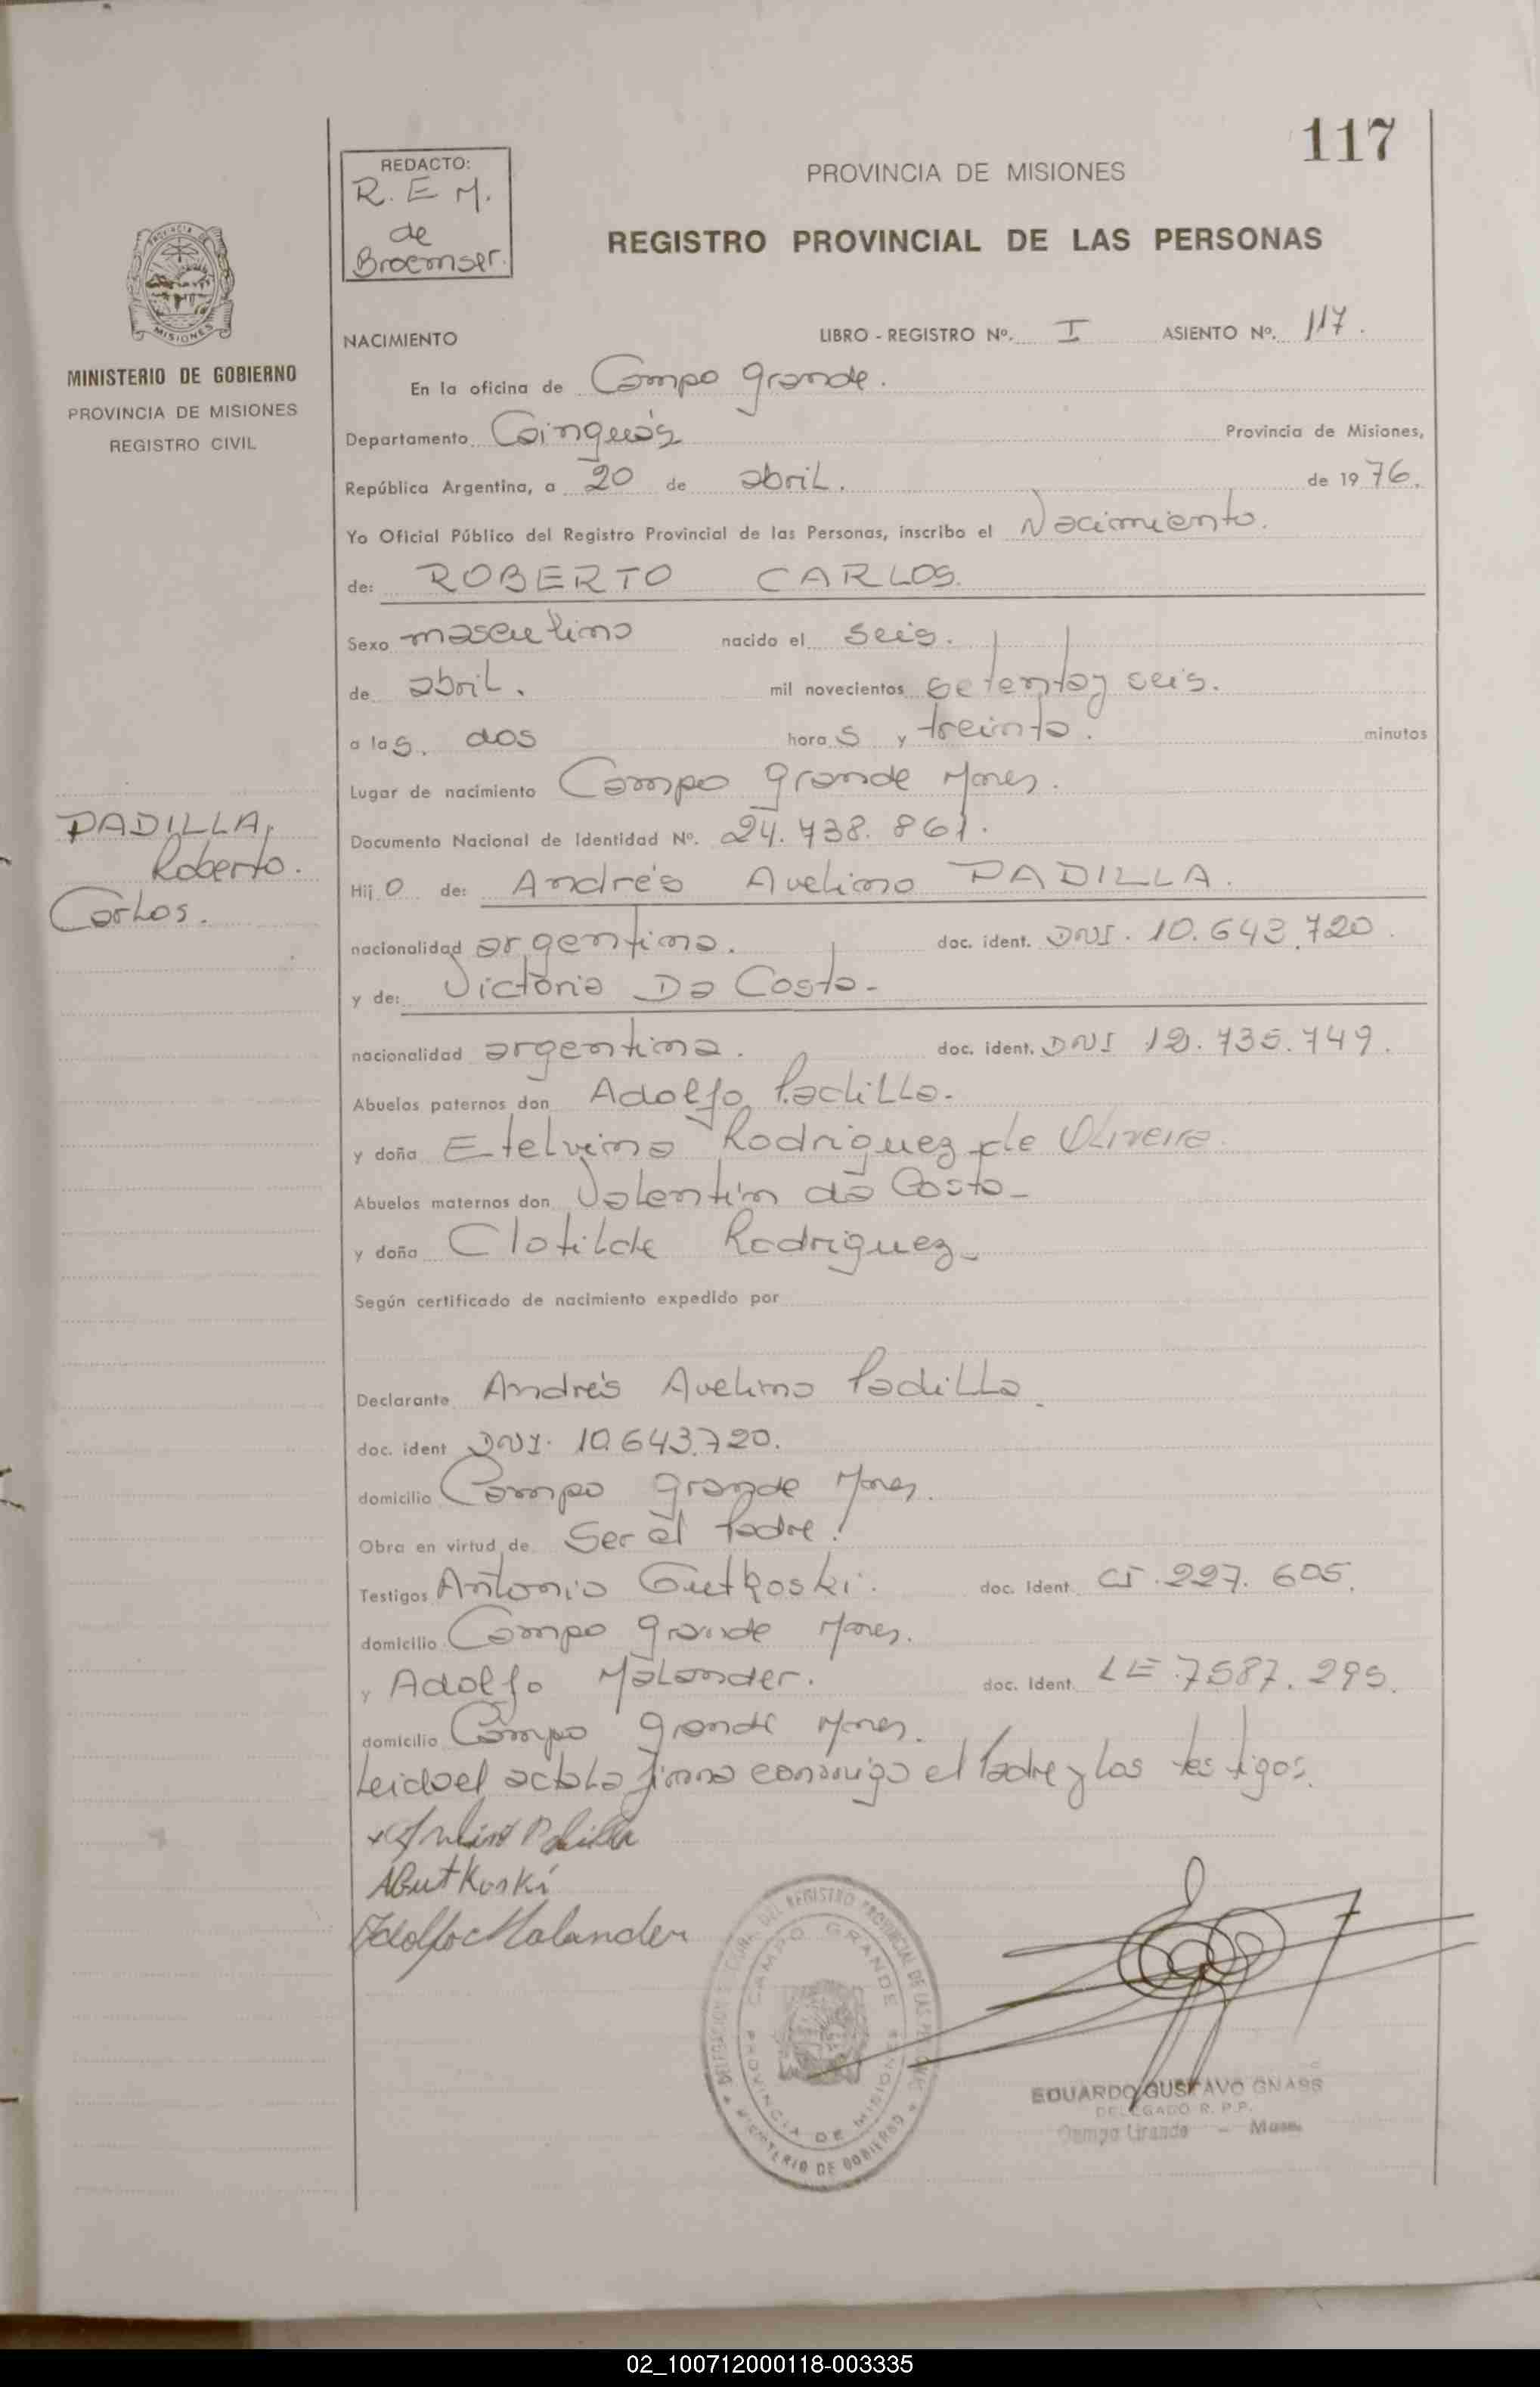 117
REDACTO:
R. E M.
de
Broemser.
PROVINCIA DE MISIONES
REGISTRO PROVINCIAL DE LAS PERSONAS
MINISTERIO DE GOBIERNO
PROVINCIA DE MISIONES
REGISTRO CIVIL
NACIMIENTO LIBRO - REGISTRO Nº. I ASIENTO Nº. 117.
En la oficina de Campo grande.
Departamento Cainguás Provincia de Misiones,
República Argentina, a 20 de abril. de 1976.
Yo Oficial Público del Registro Provincial de las Personas, inscribo el Nacimiento.
de: ROBERTO CARLOS.
Sexo masculino nacido el seis.
de abril. mil novecientos setentay seis.
a las. dos horas y treinta. minutos
Lugar de nacimiento Campo grande Mnes.
Documento Nacional de Identidad Nº. 24.738.861.
PADILLA,
Roberto.
Carlos.
Hijo de: Andrés Avelino PADILLA.
nacionalidad argentina. doc. ident. DNI. 10.643.720.
y de: Victoria Da Costa-
nacionalidad argentina. doc. ident. DNI 12.735.749.
Abuelos paternos don Adolfo Padilla.
y doña Etelvina Rodriguez de Oliveira.
Abuelos maternos don Valentín da Costa-
y doña Clotilde Rodriguez-
Según certificado de nacimiento expedido por
Declarante Andrés Avelino Padilla
doc. ident DNI. 10.643.720.
domicilio Campo grande Mnes.
Obra en virtud de Ser el Padre!
Testigos Antonio Gutkoski. doc. Ident. CI.227.605.
domicilio Campo grande Mnes.
y Adolfo Malander. doc. Ident. LE.7587.295.
domicilio Campo grande Mnes.
Leidael acta La firma conmigo el Padre y Los testigos.
Padilla
AGutkoski
Adolfo Malander
DELEGACION REGISTRO PROVINCIAL DE LAS PERSONAS
CAMPO GRANDE
PROVINCIA DE MISIONES
MINISTERIO DE GOBIERNO
EDUARDO GUSTAVO GNASS
DELEGADO R. P. P.
Campo Grande - Mnes.
02_100712000118-003335